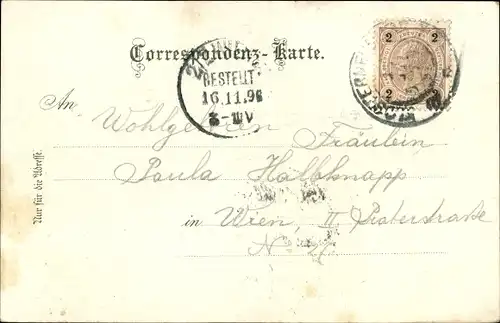 Correspondenz-Karte.
2
2
2
2
BESTELLT
16.11.96
An
Wohlgeboren Fräulein
Paula Halbknapp
in Wien, II. Praterstraße
No 27.
Nur für die Adresse.